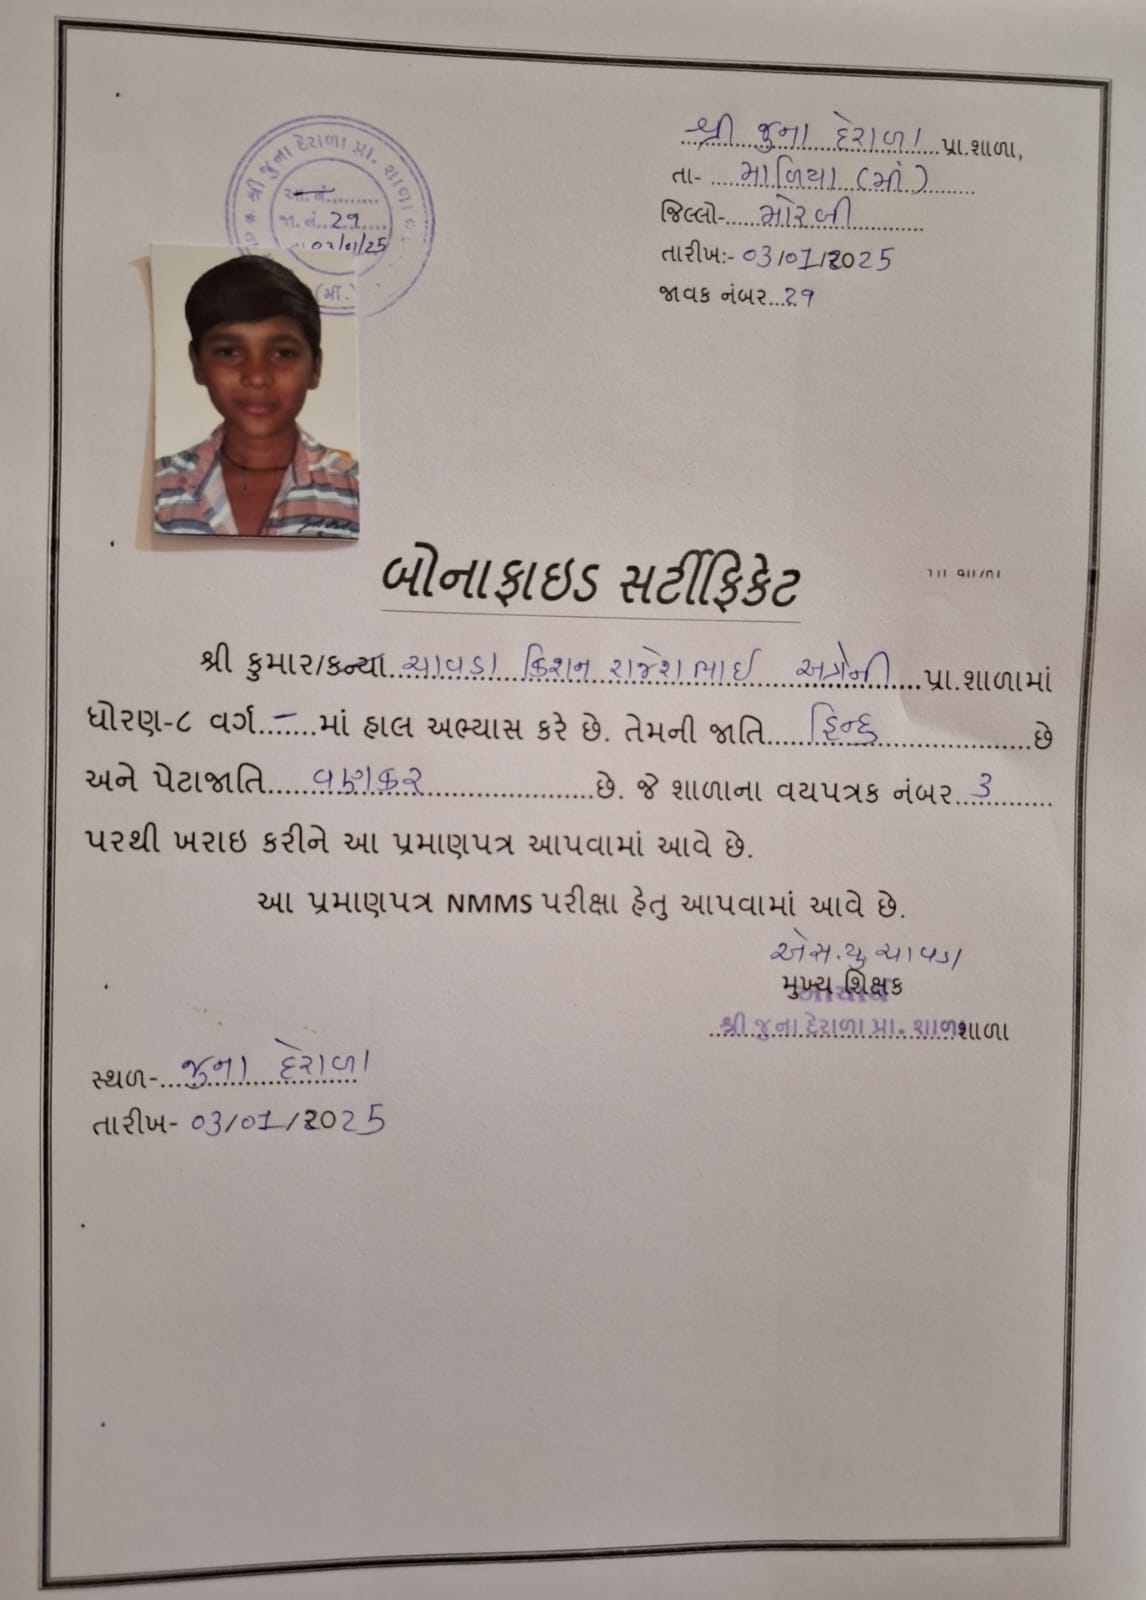 શ્રી જુના દેરાળા પ્રા.શાળા,
તા- માળિયા (મીં.)
જિલ્લો- મોરબી
તારીખ:- 03/01/2025
જાવક નંબર. ૨૧
શ્રી જુના દેરાળા પ્રા. શાળા
જા. નં. ૨૧
બોનાફાઇડ સર્ટીફિકેટ
શ્રી કુમાર/કન્યા ચાવડા કિશન રાજેશભાઈ અત્રેની પ્રા.શાળામાં
ધોરણ-૮ વર્ગ - માં હાલ અભ્યાસ કરે છે. તેમની જાતિ હિન્દુ છે
અને પેટાજાતિ વણકર છે. જે શાળાના વયપત્રક નંબર 3
પરથી ખરાઇ કરીને આ પ્રમાણપત્ર આપવામાં આવે છે.
આ પ્રમાણપત્ર NMMS પરીક્ષા હેતુ આપવામાં આવે છે.
એસ.યુ. ચાવડા
મુખ્ય શિક્ષક
આચાર્ય
શ્રી જુના દેરાળા પ્રા. શાળા શાળા
સ્થળ- જુના દેરાળા
તારીખ- 03/01/2025